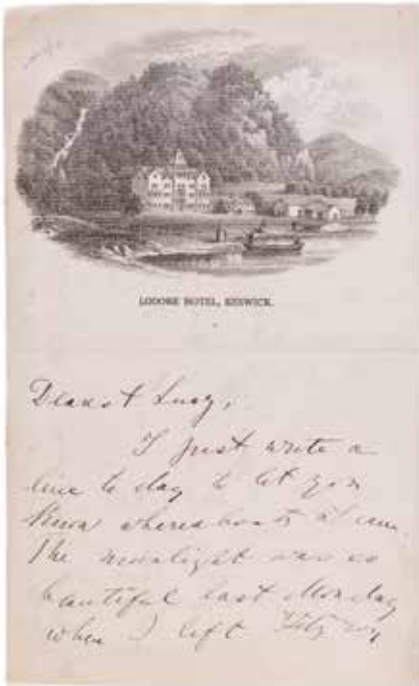 LODORE HOTEL, KESWICK.
Dearest Lucy,
I just write a
line to day to let you
know whereabouts I am.
The moonlight was so
beautiful last Monday
when I left Fitzroy